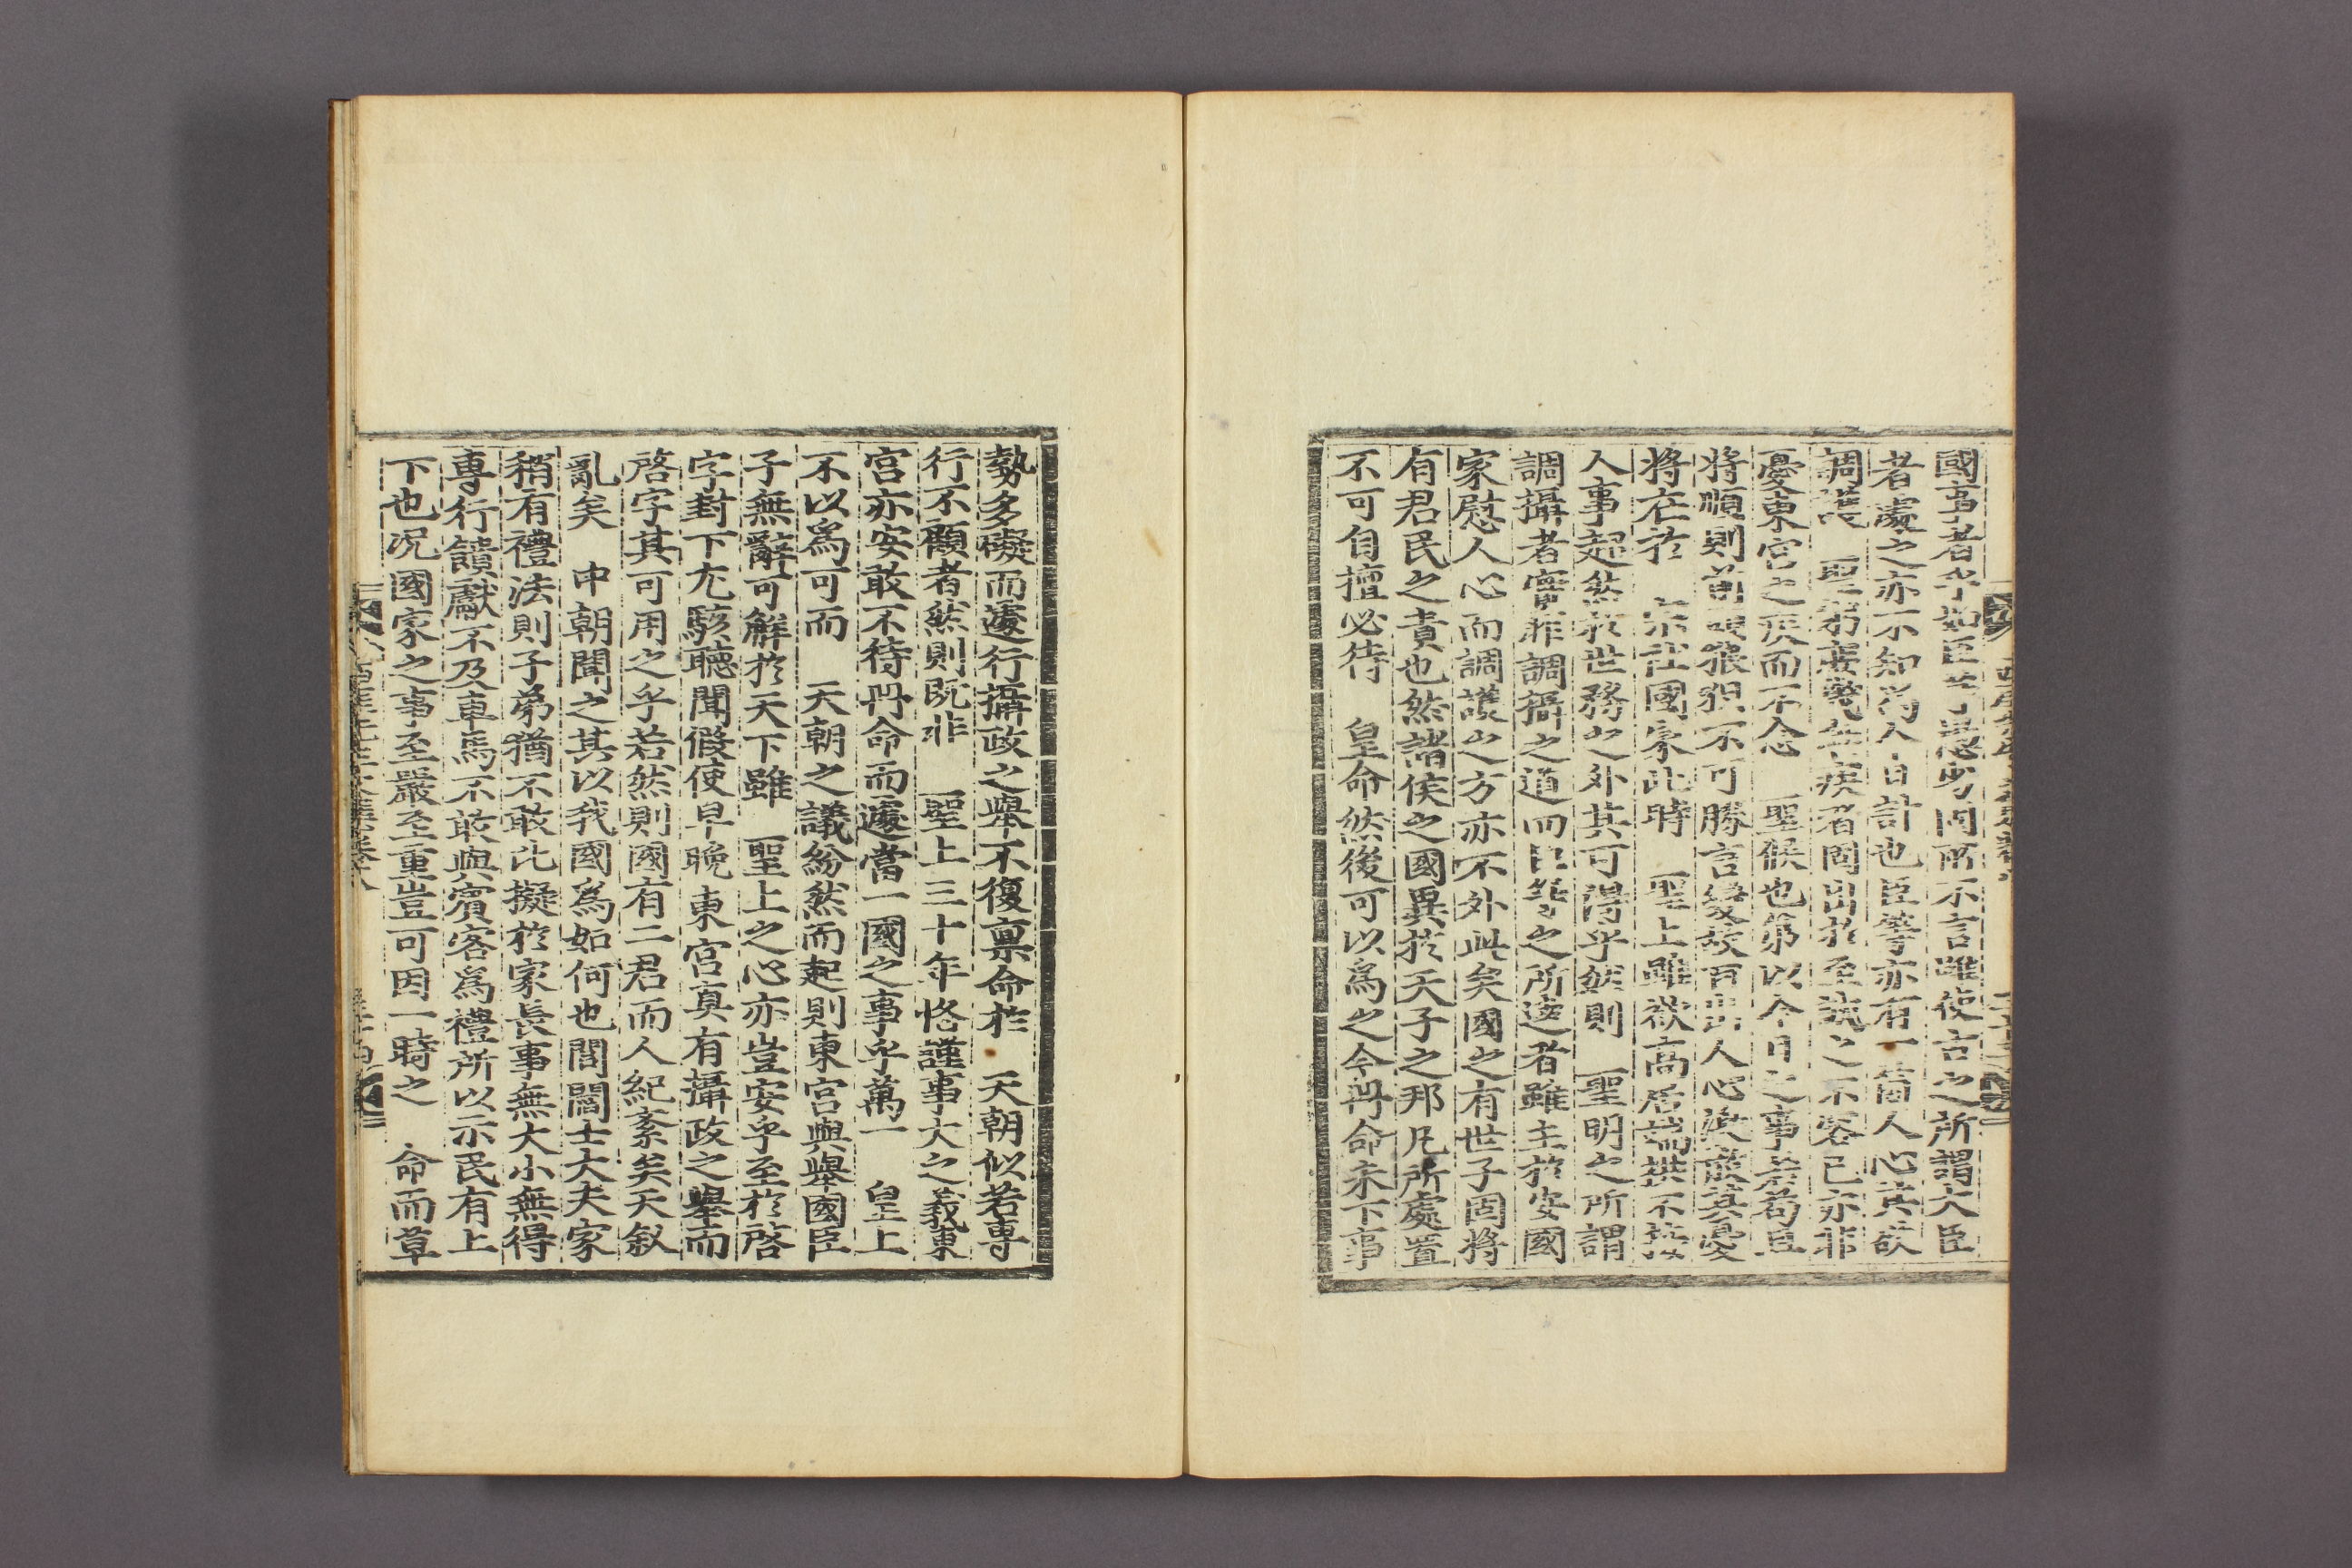 國事者乎如臣等悉劣固所不言雖使古之所謂大臣
者處之亦不知爲人自計也臣等亦有一箇人心其欲
調護 聖躬冀幾無疾者固出於至誠之不容已亦非
憂東宮之疾而不念 聖候也第以今日之事若苟且
將順則前頭狼狽不可勝言變故百出人心渙散其憂
將在於 宗社國家此時 聖上雖欲高居端拱不接
人事超然於世務之外其可得乎然則 聖明之所謂
調攝者實非調攝之道而臣等之所達者雖主於安國
家慰人心而調護之方亦不外此矣國之有世子固將
有君民之責也然諸侯之國異於天子之邦凡所處置
不可自擅必待 皇命然後可以爲之今册命未下事
勢多礙而遽行攝政之擧不復稟命於 天朝似若專
行不顧者然則旣非 聖上三十年恪謹事大之義東
宮亦安敢不待册命而遽當一國之事乎萬一 皇上
不以爲可而 天朝之議紛然而起則東宮與擧國臣
子無辭可解於天下雖 聖上之心亦豈安乎至於啓
字封下尤駭聽聞假使早晚東宮眞有攝政之擧而
啓字其可用之乎若然則國有二君而人紀紊矣天敍
亂矣 中朝聞之其以我國爲如何也閭閻士大夫家
稍有禮法則子弟猶不敢比擬於家長事無大小無得
專行饋獻不及車馬不敢與賓客爲禮所以示民有上
下也况國家之事至嚴至重豈可因一時之 命而草